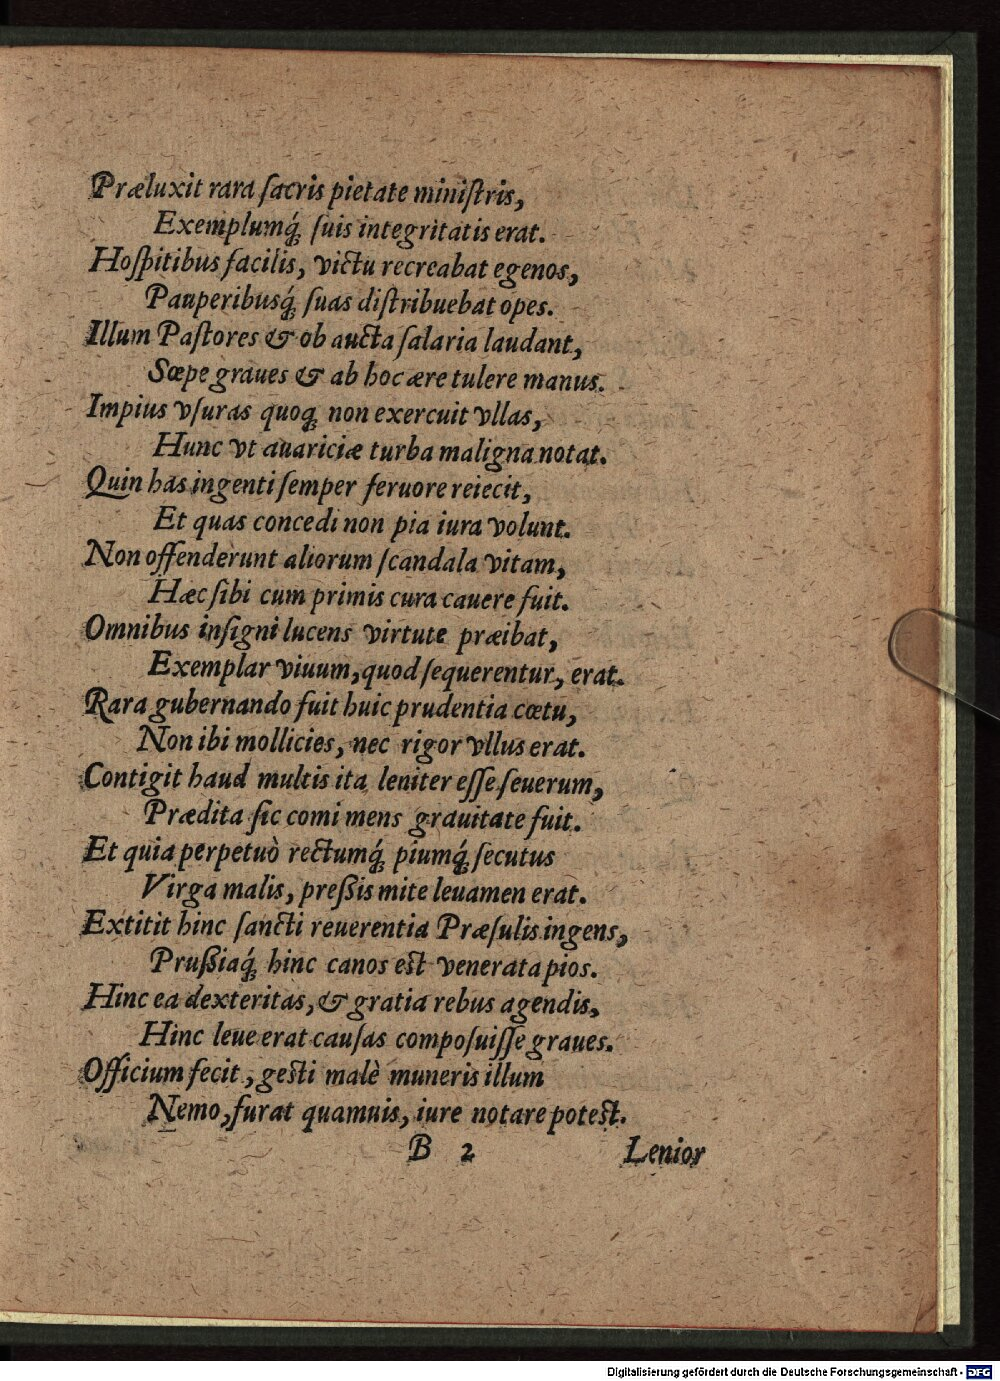 Præluxit rara ſacris pietate miniſtris,
Exemplumq́; ſuis integritatis erat.
Hoſpitibus facilis, victu recreabat egenos,
Pauperibusq́; ſuas diſtribuebat opes.
Illum Paſtores & ob aucta ſalaria laudant,
Sœpe graues & ab hoc ære tulere manus.
Impius vſuras quoq; non exercuit vllas,
Hunc vt auariciæ turba maligna notat.
Quin has ingenti ſemper feruore reiecit,
Et quas concedi non pia iura volunt.
Non offenderunt aliorum ſcandala vitam,
Hæc ſibi cum primis cura cauere fuit.
Omnibus inſigni lucens virtute præibat,
Exemplar viuum, quod ſequerentur, erat.
Rara gubernando fuit huic prudentia cœtu,
Non ibi mollicies, nec rigor vllus erat.
Contigit haud multis ita leniter eſſe ſeuerum,
Prædita ſic comi mens grauitate fuit.
Et quia perpetuò rectumq́; piumq́; ſecutus
Virga malis, preßis mite leuamen erat.
Extitit hinc ſancti reuerentia Præſulis ingens,
Prußiaq́; hinc canos est venerata pios.
Hinc ea dexteritas, & gratia rebus agendis,
Hinc leue erat cauſas compoſuiſſe graues.
Officium fecit, gesti malè muneris illum
Nemo, furat quamuis, iure notare potest.
B 2 Lenior
Digitalisierung gefördert durch die Deutsche Forschungsgemeinschaft - DFG